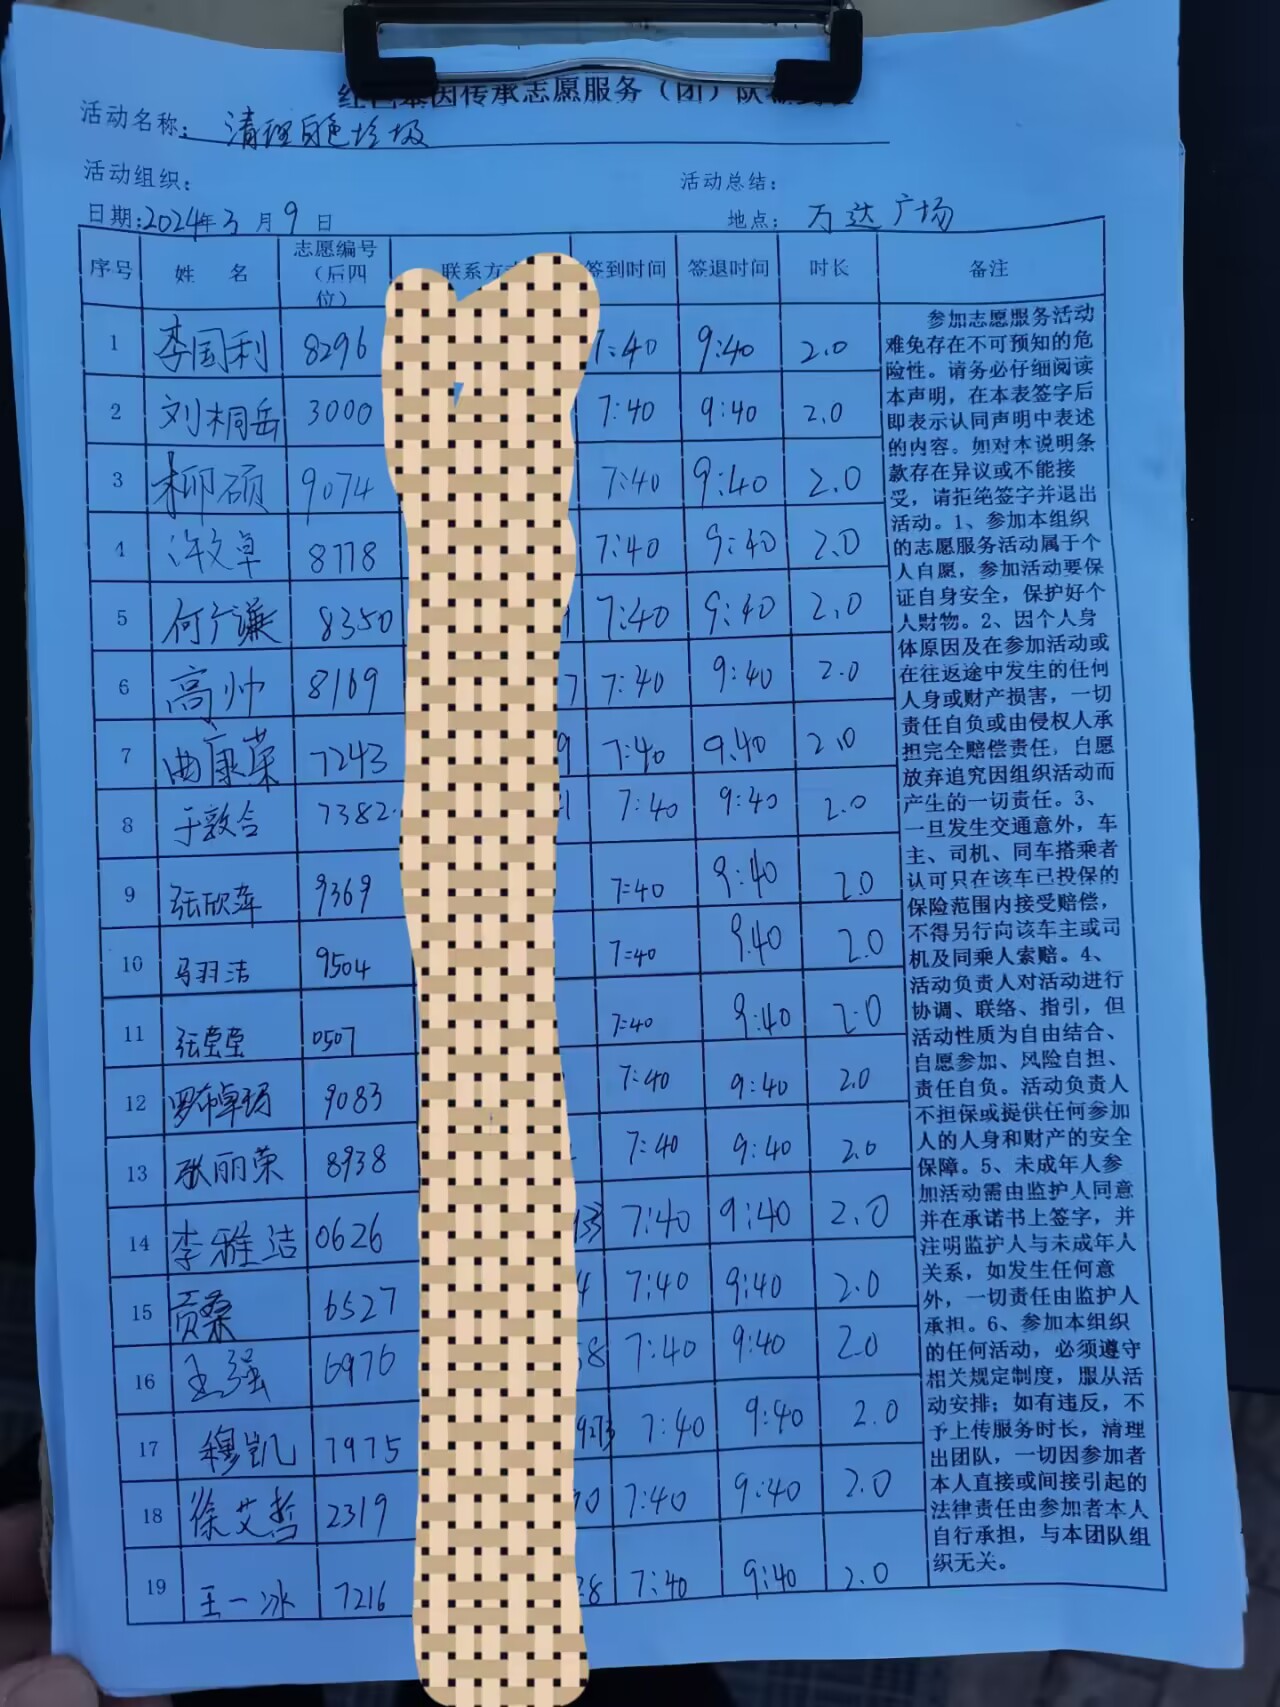 因传承志愿服务（团）队
活动名称：清理白色垃圾
活动组织：
活动总结：
日期：2024年3月9日
地点：万达广场
序号 姓 名 志愿编号（后四位） 联系方 签到时间 签退时间 时长 备注
1 李国利 8296 7:40 9:40 2.0
2 刘桐岳 3000 7:40 9:40 2.0
3 柳硕 9074 7:40 9:40 2.0
4 许文卓 8778 7:40 9:40 2.0
5 何广谦 8350 7:40 9:40 2.0
6 高帅 8169 7 7:40 9:40 2.0
7 曲康荣 7243 9 7:40 9:40 2.0
8 于敦合 7382 1 7:40 9:40 2.0
9 张欣萍 9369 7:40 9:40 2.0
10 马羽洁 9504 7:40 9:40 2.0
11 张莹莹 0507 7:40 9:40 2.0
12 9083 7:40 9:40 2.0
13 张丽荣 8938 7:40 9:40 2.0
14 李雅洁 0626 33 7:40 9:40 2.0
15 贡桑 6527 4 7:40 9:40 2.0
16 王强 6976 58 7:40 9:40 2.0
17 穆凯 7975 7:40 9:40 2.0
18 徐艾哲 2319 0 7:40 9:40 2.0
19 王一冰 7216 28 7:40 9:40 2.0
参加志愿服务活动
难免存在不可预知的危
险性。请务必仔细阅读
本声明，在本表签字后
即表示认同声明中表述
的内容。如对本说明条
款存在异议或不能接
受，请拒绝签字并退出
活动。1、参加本组织
的志愿服务活动属于个
人自愿，参加活动要保
证自身安全，保护好个
人财物。2、因个人身
体原因及在参加活动或
在往返途中发生的任何
人身或财产损害，一切
责任自负或由侵权人承
担完全赔偿责任，自愿
放弃追究因组织活动而
产生的一切责任。3、
一旦发生交通意外，车
主、司机、同车搭乘者
认可只在该车已投保的
保险范围内接受赔偿，
不得另行向该车主或司
机及同乘人索赔。4、
活动负责人对活动进行
协调、联络、指引，但
活动性质为自由结合、
自愿参加、风险自担、
责任自负。活动负责人
不担保或提供任何参加
人的人身和财产的安全
保障。5、未成年人参
加活动需由监护人同意
并在承诺书上签字，并
注明监护人与未成年人
关系，如发生任何意
外，一切责任由监护人
承担。6、参加本组织
的任何活动，必须遵守
相关规定制度，服从活
动安排；如有违反，不
予上传服务时长，清理
出团队，一切因参加者
本人直接或间接引起的
法律责任由参加者本人
自行承担，与本团队组
织无关。